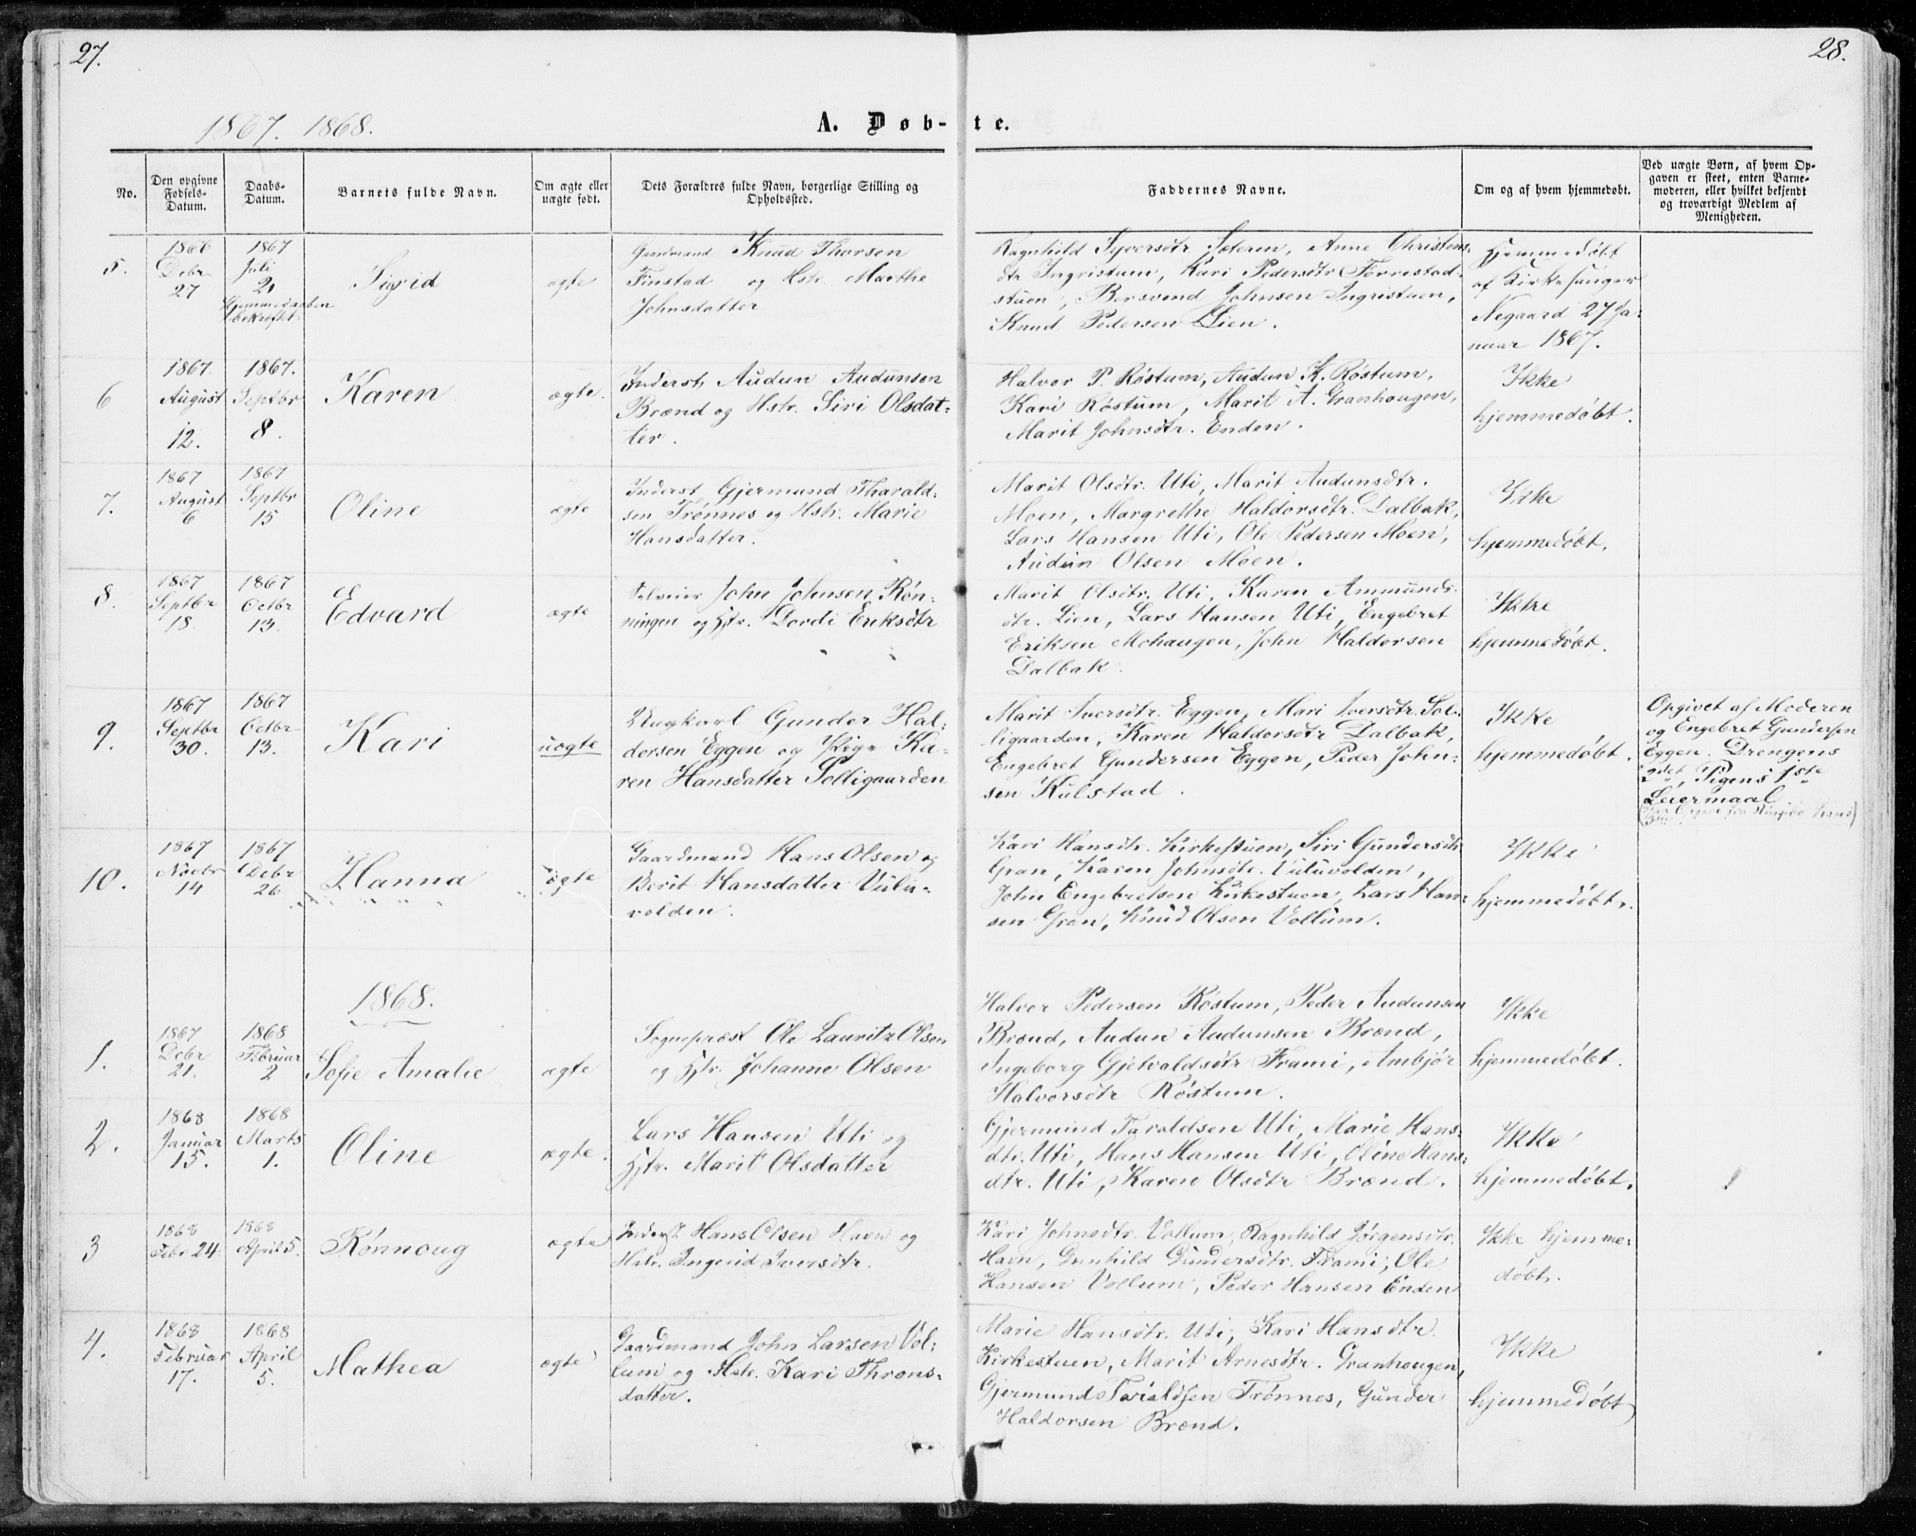 27.
28.
1867. 1868.
A. Døb-
te.
No.
Den opgivne
Fødsels-
Datum.
Daabs-
Datum.
Barnets fulde Navn.
Om ægte eller
uægte født.
Dets Forældres fulde Navn, borgerlige Stilling og
Opholdssted.
Faddernes Navne.
Om og af hvem hjemmedøbt.
Ved uægte Børn, af hvem Op-
gaven er skeet, enten Barne-
moderen, eller hvilket bekjendt
og troværdigt Medlem af
Menigheden.
5.
1866
Debr
27
1867
Juli
21
Hjemmedaaben
bekræftet
Sigrid
ægte
Gaardmand Knud Thorsen
Finstad og Hstr Marthe
Johnsdatter
Ragnhild Syversdtr Sæteren, Anne Christens-
dtr Ingristuen, Kari Pedersdtr Finnestad-
stuen, Bersvend Johnsen Ingristuen,
Knud Pedersen Lien.
Hjemmedøbt
af Kirkesanger
Negaard 27 Ja-
nuar 1867.
6
1867.
August
12.
1867.
Septbr
8.
Karen
ægte.
Inderst Audun Audunsen
Brænd og Hstr. Siri Olsdat-
ter.
Halvor P. Røstum, Audun K. Røstum,
Kari Røstum, Marit A. Granhaugen,
Marit Johnsdtr. Enden.
Ikke
hjemmedøbt.
7.
1867
August
6
1867
Septbr
15
Oline
ægte
Inderst Gjermund Tharald-
sen Trønnes og Hstr. Marie
Hansdatter.
Marit Olsdtr. Uti, Marit Audunsdtr.
Moen, Margrethe Haldorsdtr. Dalbak,
Lars Hansen Uti, Ole Pedersen Moen,
Audun Olsen Moen.
Ikke
hjemmedøbt.
8.
1867
Septbr
18.
1867
Octbr
13.
Edvard
ægte
Selveier John Johnsen Røn-
ningen og Hstr. Dordi Eriksdtr
Marit Olsdtr. Uti, Karen Ammunds-
dtr. Lien, Lars Hansen Uti, Engebret
Eriksen Mohaugen, John Haldorsen
Dalbak.
Ikke
hjemmedøbt.
9.
1867
Septbr
30.
1867
Octbr
13.
Kari
uægte
Ungkarl Gunder Hal-
dorsen Eggen og Pige Ka-
ren Hansdatter Solligaarden
Marit Iversdtr. Eggen, Mari Iversdtr. Sol-
ligaarden, Karen Haldorsdtr Dalbak,
Engebret Gundersen Eggen, Peder John-
sen Kulstad.
Ikke
hjemmedøbt.
Opgivet af Moderen
og Engebret Gundersen
Eggen. Drengens
2det, Pigens 1ste
Leiermaal
10.
1867
Novbr
14
1867
Debr
26
Hanna
ægte
Gaardmand Hans Olsen og
Berit Hansdatter Vulu-
volden.
Kari Hansdtr. Kirkestuen, Siri Gundersdtr
Gran, Karen Johnsdtr. Vuluvolden,
John Engebretsen Kirkestuen, Lars Han-
sen Gran, Knud Olsen Vollum.
Ikke
hjemmedøbt.
1868.
1.
1867
Debr
21.
1868
Februar
2
Sofie Amalie
ægte
Sognepræst Ole Lauritz Olsen
og Hstr. Johanne Olsen
Halvor Pedersen Røstum, Peder Audunsen
Brænd, Audun Audunsen Brænd,
Ingeborg Gjetvaldsdtr Frami, Ambjør
Halvorsdtr Røstum.
Ikke
hjemmedøbt.
2.
1868
Januar
15.
1868
Marts
1.
Oline
ægte.
Lars Hansen Uti og
Hstr. Marit Olsdatter
Gjermund Taraldsen Uti, Marie Hans-
dtr. Uti, Hans Hansen Uti, Oline Hans-
dtr. Uti, Karen Olsdtr Brænd.
Ikke
hjemmedøbt.
3
1868
Febr 24
1868
April 5.
Rønnoug
ægte
Inderst Hans Olsen Havn og
Hstr. Ingerid Iversdtr.
Kari Johnsdtr. Vollum, Ragnhild Jørgensdtr.
Havn, Gunhild Gundersdtr. Frami, Ole
Hansen Vollum, Peder Hansen Enden
Ikke hjemme-
døbt.
4.
1868
Februar
17.
1868
April
5.
Mathea
ægte
Gaardmand John Larsen Vol-
lum og Hstr. Kari Throns-
datter.
Marie Hansdtr. Uti, Kari Hansdtr.
Kirkestuen, Marit Arnesdtr. Granhaugen,
Gjermund Taraldsen Trønnes, Gunder
Haldorsen Brænd.
Ikke
hjemmedøbt